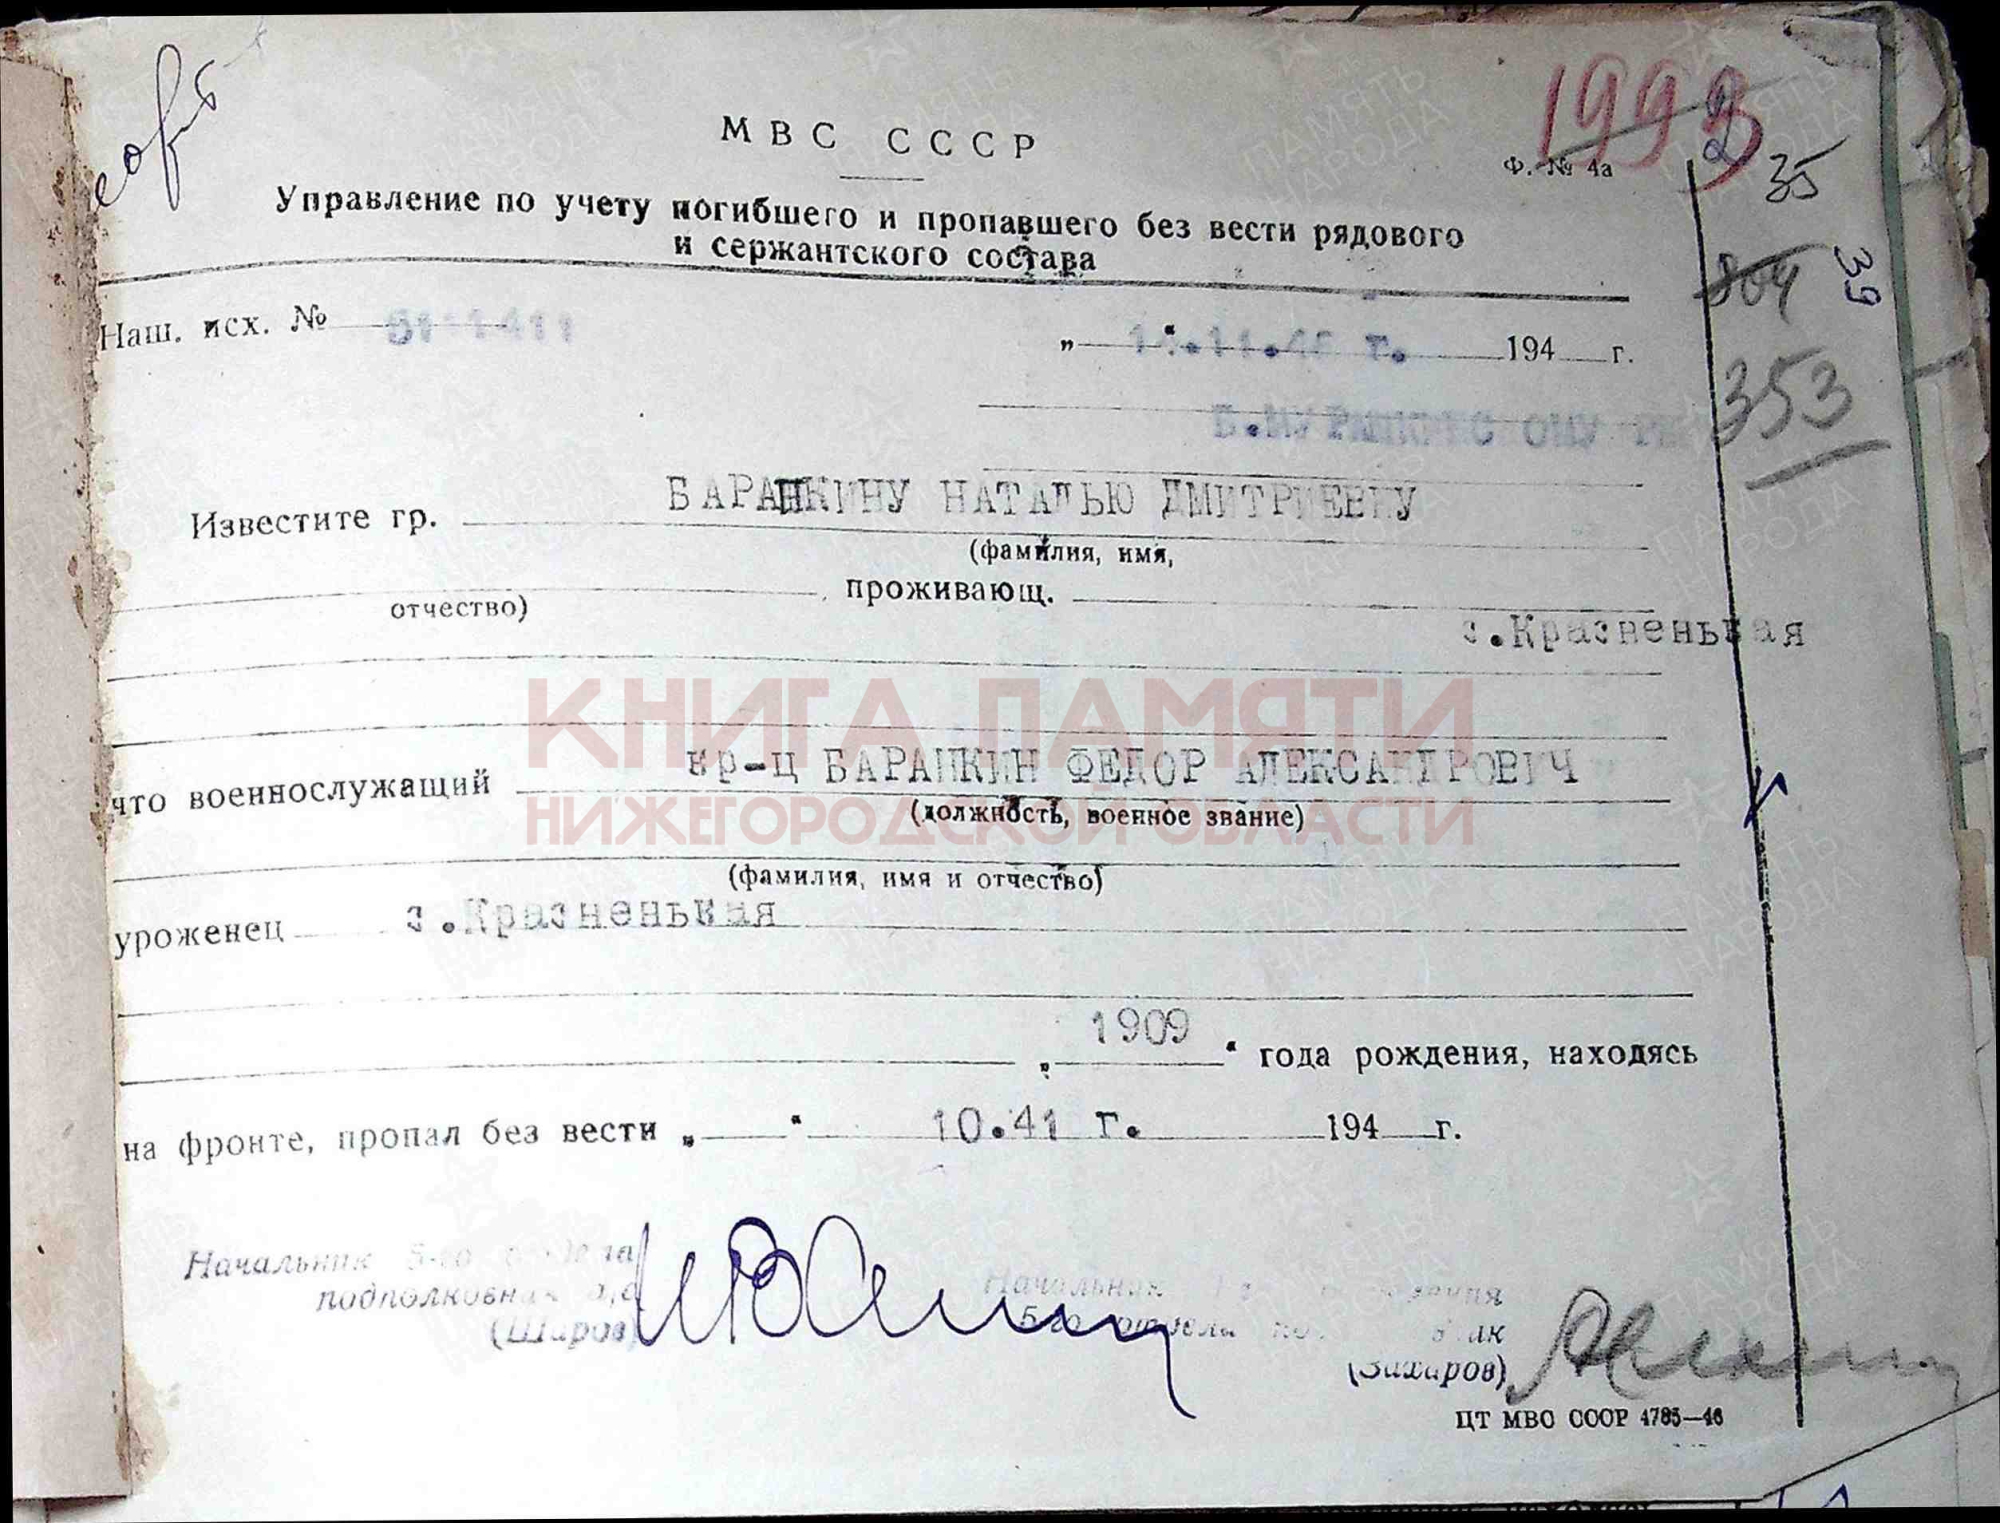 1993
35
М В С С С С Р
Ф. № 4а
Управление по учету погибшего и пропавшего без вести рядового
и сержантского состава
804
39
Наш. исх. № 61-1411
„ “ 194 г.
353
Известите гр. БАРАНКИНУ НАТАЛЬЮ ДМИТРИЕВНУ
(фамилия, имя,
отчество) проживающ.
с.Красненькая
КНИГА ПАМЯТИ
НИЖЕГОРОДСКОЙ ОБЛАСТИ
что военнослужащий кр-ц БАРАНКИН ФЕДОР АЛЕКСАНДРОВИЧ
(должность, военное звание)
(фамилия, имя и отчество)
уроженец с.Красненькая
„ 1909 “ года рождения, находясь
на фронте, пропал без вести „ “ 10.41 г. 194 г.
Начальник 5-го отдела
подполковник а/с
(Шаров)
Начальник 1-го отделения
5-го отдела
(Захаров)
ЦТ МВС СССР 4785—46
ПАМЯТЬ
НАРОДА